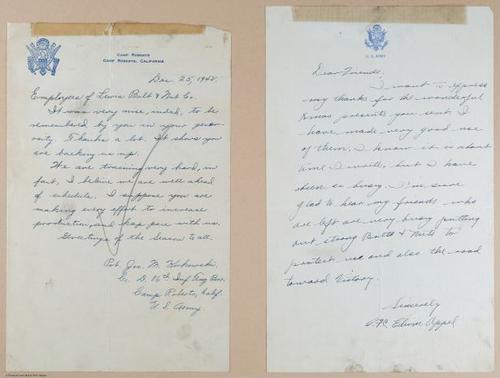 CAMP ROBERTS
CAMP ROBERTS, CALIFORNIA
Dec 25, 1942.
Employees of Lewis Bolt & Nut Co.
It was very nice, indeed, to be
remembered by you in your gener-
osity. Thanks a lot. It shows you
are backing us up.
We are training very hard, in
fact, I believe we are well ahead
of schedule. I suppose you are
making every effort to increase
production and keep pace with us.
Greetings of the Season to all.
Pvt. Jos. M.
Co. D. 16th Inf Trg Bn.
Camp Roberts, Calif.
U. S. Army
U. S. ARMY
Dear Friends:
I want to express
my thanks for the wonderful
Xmas presents you sent. I
have made very good use
of them. I know it is about
time I wrote, but I have
been so busy. I'm sure
glad to hear my friends who
are left are very busy putting
out strong Bolts & Nuts to
protect us and also the road
toward Victory.
Sincerely
Pfc. Appel